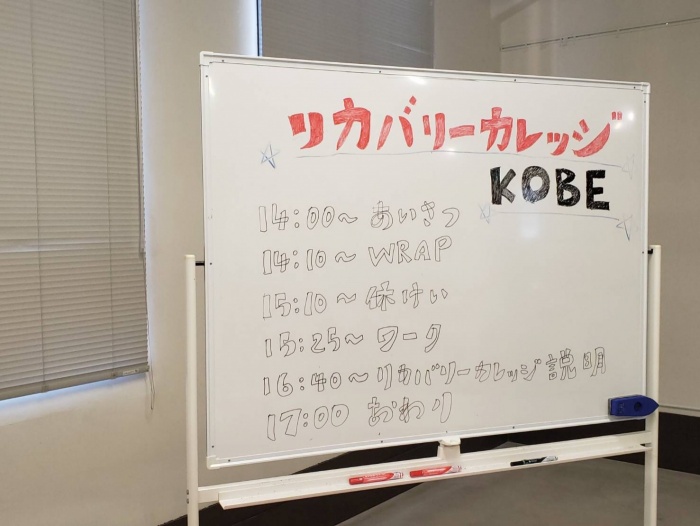 リカバリーカレッジ
KOBE
14:00〜 あいさつ
14:10〜 WRAP
15:10〜 休けい
15:25〜 ワーク
16:40〜 リカバリーカレッジ説明
17:00 おわり